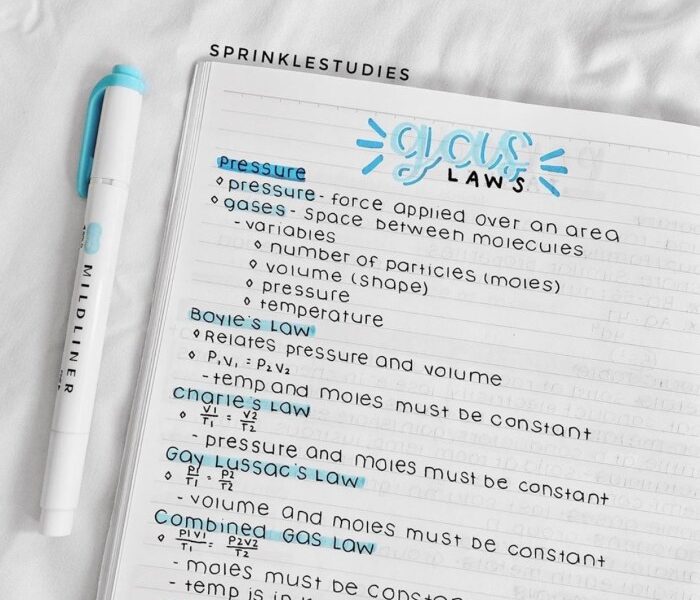 SPRINKLESTUDIES
gas
LAWS
Pressure
◊ pressure - force applied over an area
◊ gases - space between molecules
- variables
◊ number of particles (moles)
◊ volume (shape)
◊ pressure
◊ temperature
Boyle's Law
◊ Relates pressure and volume
◊ P1V1 = P2V2
- temp and moles must be constant
Charle's Law
◊ V1/T1 = V2/T2
- pressure and moles must be constant
Gay Lussac's Law
◊ P1/T1 = P2/T2
- volume and moles must be constant
Combined Gas Law
◊ P1V1/T1 = P2V2/T2
- moles must be
- temp is in
MILDLINER